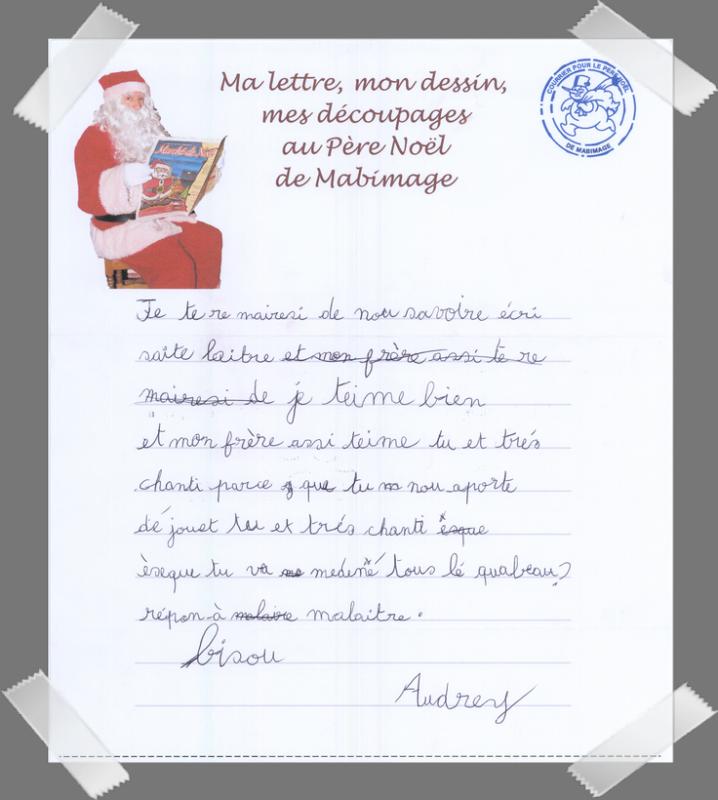 Ma lettre, mon dessin,
mes découpages
au Père Noël
de Mabimage
COURRIER POUR LE PÈRE NOËL
DE MABIMAGE
Marché de Noël
Je te re mairesi de nou savoire écri
saite laitre et mon frère assi te re
mairesi de je teime bien
et mon frère assi teime tu et trés
chanti parce que tu nou aporte
dé jouet tu et trés chanti èsque
èseque tu va medené tous lé quabeau?
répon à malaire malaitre.
bisou
Audrey